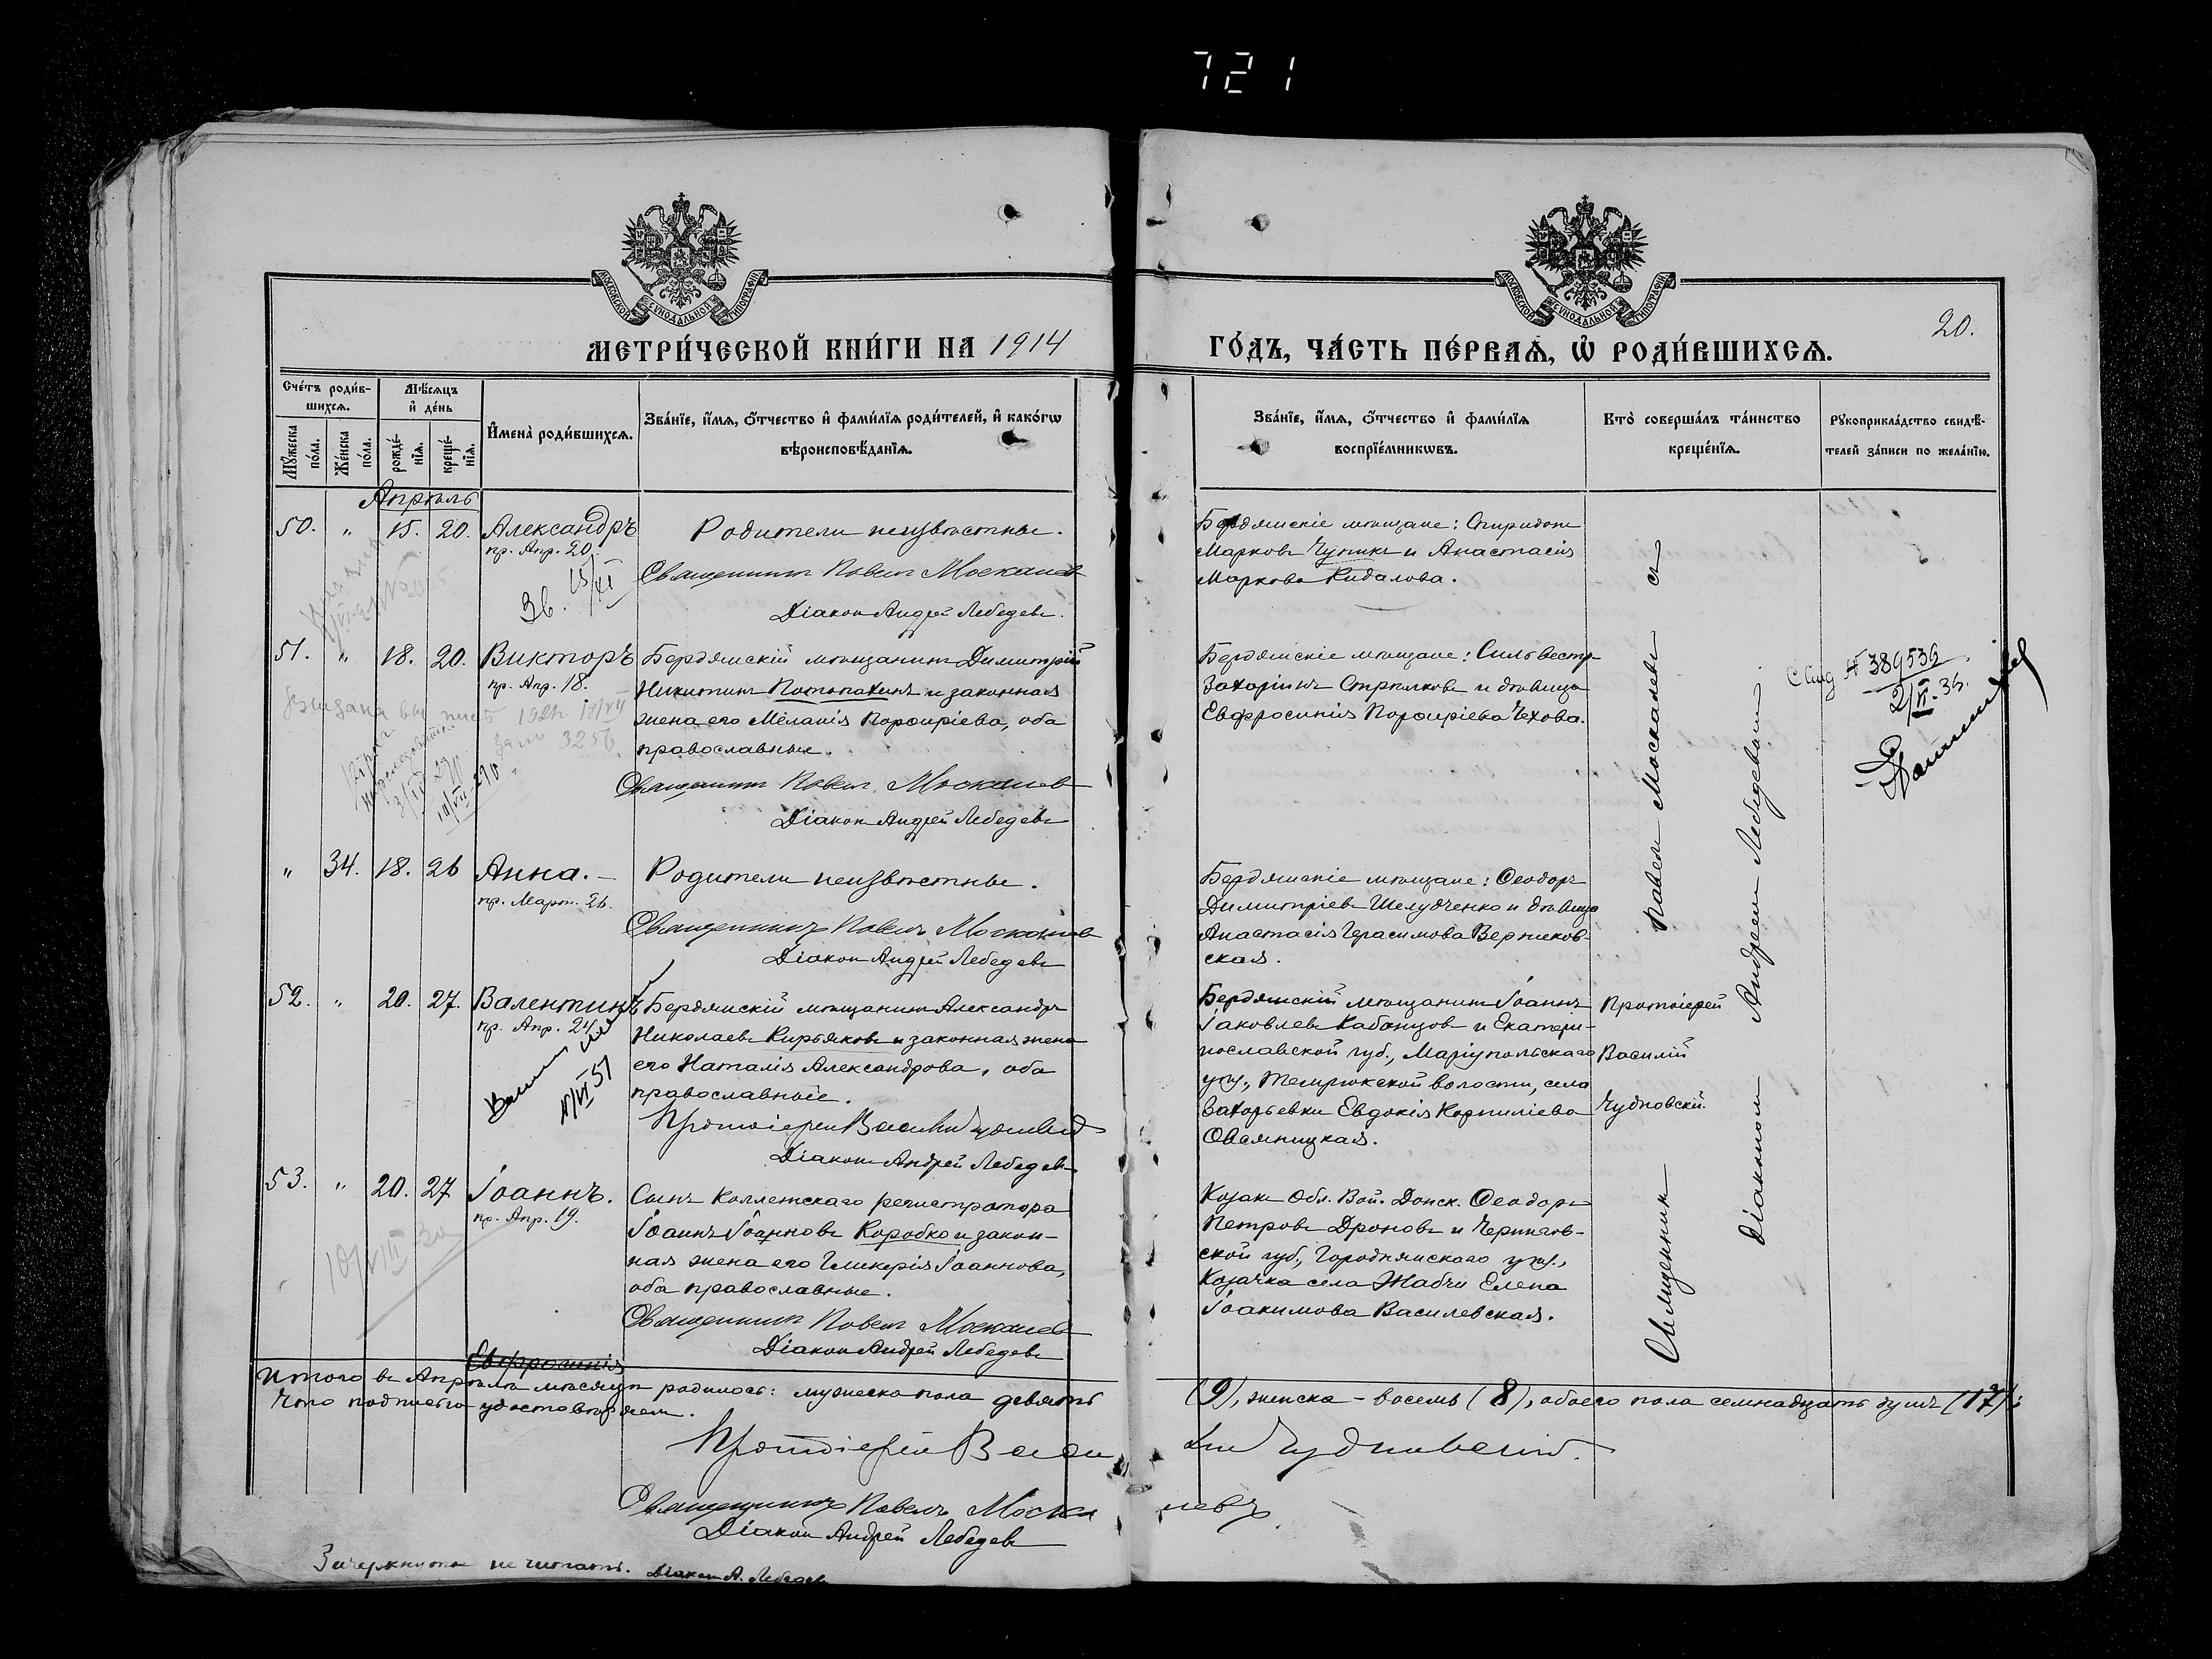 721
МОСКОВСКОЙ СѴНОДАЛЬНОЙ ТИПОГРАФІИ
МОСКОВСКОЙ СѴНОДАЛЬНОЙ ТИПОГРАФІИ
МЕТРИ́ЧЕСКОЙ КНИ́ГИ НА 1914
ГО́ДЪ, ЧА́СТЬ ПЕ́РВАѦ, Ѡ҆ РОДИ́ВШИХСѦ.
20.
Сче́тъ роди́в-
шихсѧ.
Мѣ́сѧцъ
и҆ де́нь
Мꙋ́жеска по́ла.
Же́нска по́ла.
рожде́-
нїѧ.
креще́-
нїѧ.
И҆мена̀ роди́вшихсѧ.
Зва́нїе, и҆́мѧ, ѻ҆́тчество и҆ фами́лїѧ роди́телей, и҆ како́гѡ
вѣроисповѣ́данїѧ.
Зва́нїе, и҆́мѧ, ѻ҆́тчество и҆ фами́лїѧ
воспрїе́мникѡвъ.
Кто̀ соверша́лъ та́инство
креще́нїѧ.
Рꙋкоприкла́дство свидѣ́-
телей за́писи по жела́нїю.
Апрѣль
50. " 15. 20. Александръ
пр. Апр. 20.
Зв. 15/XI
Родители неизвѣстны.
Священникъ Павелъ Москалевъ
Діаконъ Андрей Лебедевъ.
Бердянскіе мѣщане: Спиридонъ
Марковъ Чупикъ и Анастасія
Маркова Кидалова.
51. " 18. 20. Викторъ
пр. Апр. 18.
Бердянскій мѣщанинъ Димитрій
Никитинъ Потапахинъ и законная
жена его Меланія Порфиріева, оба
православные.
Священникъ Павелъ Москалевъ
Діаконъ Андрей Лебедевъ
Бердянскіе мѣщане: Сильвестръ
Захаріинъ Стрѣлковъ и дѣвица
Евфросинія Порфиріева Чехова.
№ 389539
" 34. 18. 26 Анна. –
пр. Март. 26.
Родители неизвѣстны.
Священникъ Павелъ Москалевъ
Діаконъ Андрей Лебедевъ
Бердянскіе мѣщане: Ѳеодоръ
Димитріевъ Шелудченко и дѣвица
Анастасія Герасимова Верников-
ская.
52. " 20. 27. Валентинъ
пр. Апр. 24
Бердянскій мѣщанинъ Александръ
Николаевъ Кирьяковъ и законная жена
его Наталія Александрова, оба
православные.
Протоіерей Василій Чудновскій
Діаконъ Андрей Лебедевъ
Бердянскій мѣщанинъ Іоаннъ
Іаковлевъ Кабанцовъ и Екатери-
нославской губ., Маріупольскаго
уѣз., Темрюкской волости, села
Захарьевки Евдокія Корниліева
Овсяницкая.
Протоіерей
Василій
Чудновскій.
53. " 20. 27 Іоаннъ.
пр. Апр. 19.
Сынъ Коллежскаго регистратора
Іоаннъ Іоанновъ Коробко и закон-
ная жена его Гликерія Іоаннова,
оба православные.
Священникъ Павелъ Москалевъ
Діаконъ Андрей Лебедевъ
Козакъ Обл. Вой. Донск. Ѳеодоръ
Петровъ Дроновъ и Чернигов-
ской губ., Городнянскаго уѣз.,
Козачка села Жабчи Елена
Іоакимова Василевская.
Священникъ Павелъ Москалевъ съ
Діакономъ Андреемъ Лебедевымъ.
Евфросинія
Итого въ Апрѣлѣ мѣсяцѣ родилось: мужеска пола девять (9), женска – восемь (8), обоего пола семнадцать душъ (17);
Что подписью удостовѣряемъ.
Протоіерей Василій Чудновскій.
Священникъ Павелъ Москалевъ
Діаконъ Андрей Лебедевъ
Зачеркнутое не читать. Діаконъ А. Лебедевъ